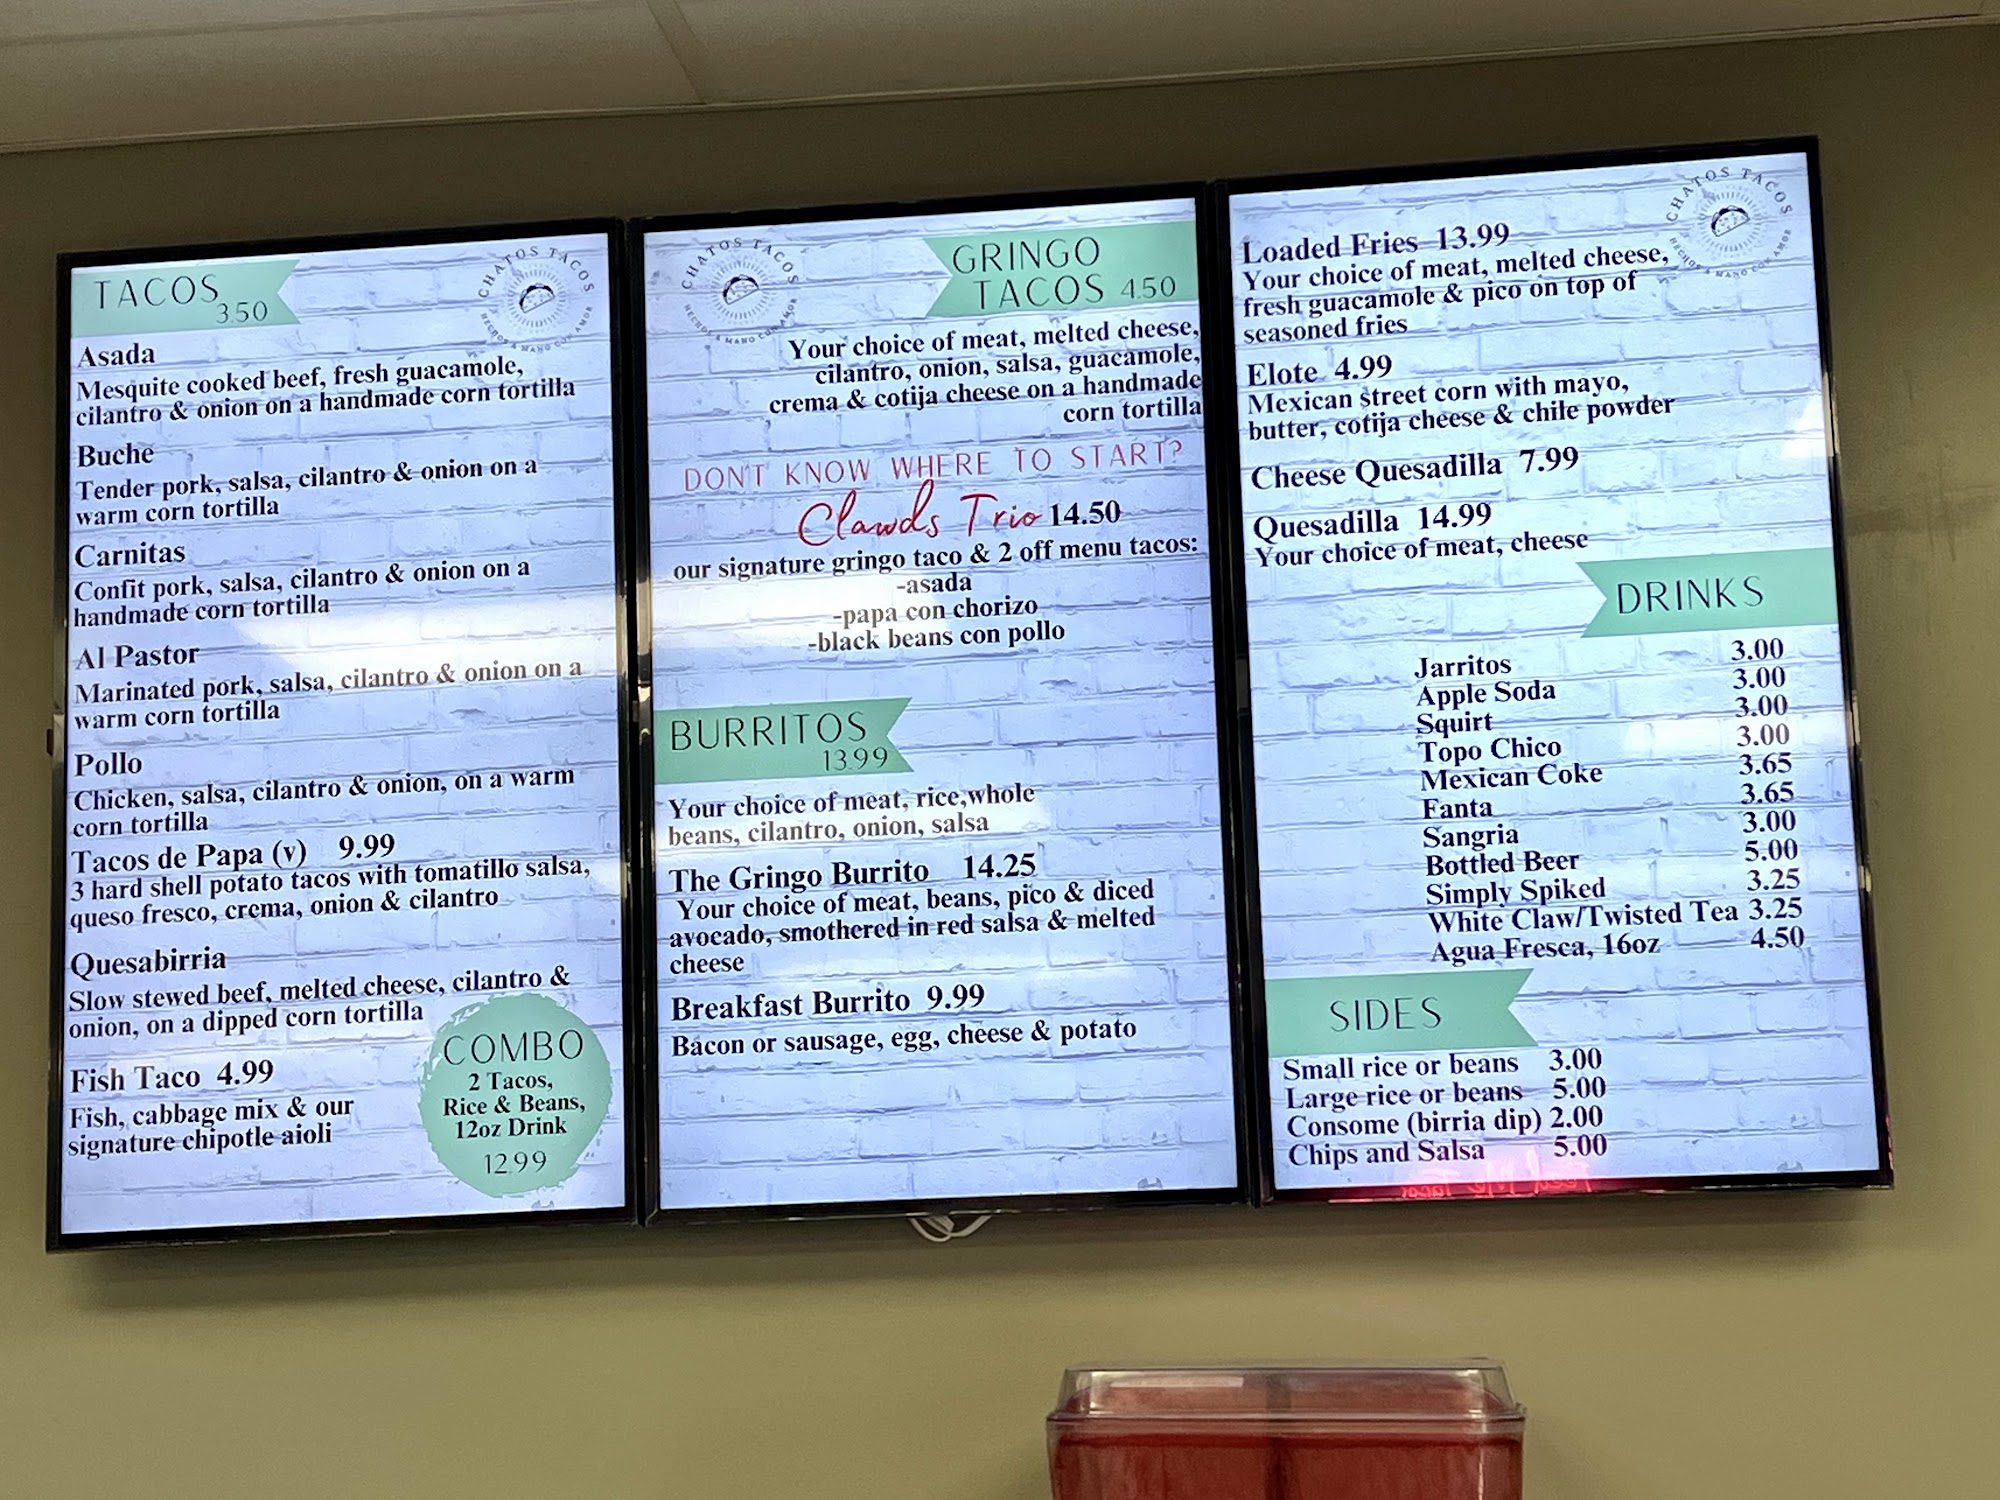 TACOS
3.50
CHATOS TACOS
HECHOS A MANO CON AMOR
Asada
Mesquite cooked beef, fresh guacamole,
cilantro & onion on a handmade corn tortilla
Buche
Tender pork, salsa, cilantro & onion on a
warm corn tortilla
Carnitas
Confit pork, salsa, cilantro & onion on a
handmade corn tortilla
Al Pastor
Marinated pork, salsa, cilantro & onion on a
warm corn tortilla
Pollo
Chicken, salsa, cilantro & onion, on a warm
corn tortilla
Tacos de Papa (v) 9.99
3 hard shell potato tacos with tomatillo salsa,
queso fresco, crema, onion & cilantro
Quesabirria
Slow stewed beef, melted cheese, cilantro &
onion, on a dipped corn tortilla
Fish Taco 4.99
Fish, cabbage mix & our
signature chipotle aioli
COMBO
2 Tacos,
Rice & Beans,
12oz Drink
12.99
CHATOS TACOS
HECHOS A MANO CON AMOR
GRINGO
TACOS 4.50
Your choice of meat, melted cheese,
cilantro, onion, salsa, guacamole,
crema & cotija cheese on a handmade
corn tortilla
DON'T KNOW WHERE TO START?
Clawds Trio 14.50
our signature gringo taco & 2 off menu tacos:
-asada
-papa con chorizo
-black beans con pollo
BURRITOS
13.99
Your choice of meat, rice,whole
beans, cilantro, onion, salsa
The Gringo Burrito 14.25
Your choice of meat, beans, pico & diced
avocado, smothered in red salsa & melted
cheese
Breakfast Burrito 9.99
Bacon or sausage, egg, cheese & potato
CHATOS TACOS
HECHOS A MANO CON AMOR
Loaded Fries 13.99
Your choice of meat, melted cheese,
fresh guacamole & pico on top of
seasoned fries
Elote 4.99
Mexican street corn with mayo,
butter, cotija cheese & chile powder
Cheese Quesadilla 7.99
Quesadilla 14.99
Your choice of meat, cheese
DRINKS
Jarritos 3.00
Apple Soda 3.00
Squirt 3.00
Topo Chico 3.00
Mexican Coke 3.65
Fanta 3.65
Sangria 3.00
Bottled Beer 5.00
Simply Spiked 3.25
White Claw/Twisted Tea 3.25
Agua Fresca, 16oz 4.50
SIDES
Small rice or beans 3.00
Large rice or beans 5.00
Consome (birria dip) 2.00
Chips and Salsa 5.00